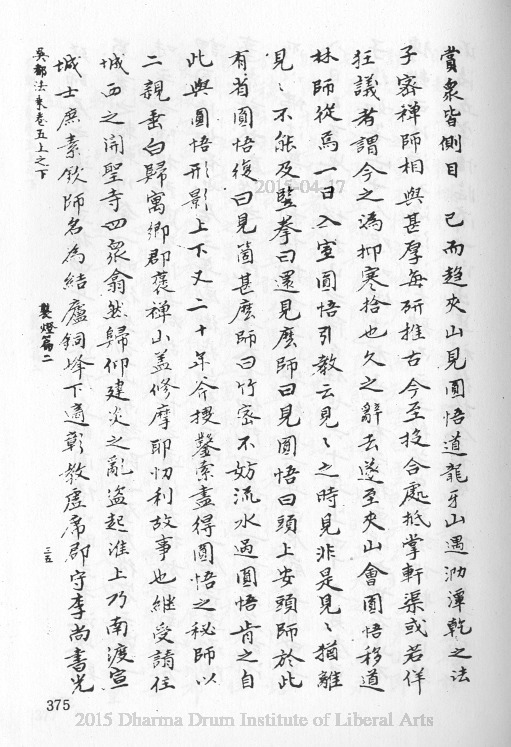 賞眾皆側目　已而趍夾山見圓悟道龍牙山遇泐潭乾之法
子密禪師相與甚厚每研推古今至投合處抵掌軒渠或若佯
狂議者謂今之溈抑寒拾也久之辭去遂至夾山會圓悟移道
林師從焉一日入室圓悟引教云見〻之時見非是見〻猶離
見〻不能及竪拳曰還見麽師曰見圓悟曰頭上安頭師於此
有省圓悟復曰見箇甚麽師曰竹密不妨流水過圓悟肯之自
此與圓悟形影上下又二十年斧搜鑿索盡得圓悟之秘師以
二親垂白歸寓鄉郡褒禪山盖修摩耶忉利故事也継受請住
城西之開聖寺四眾翕然歸仰建炎之亂盜起淮上乃南渡宣
城士庶素欽師名為結廬銅峰下適彰教虛席郡守李尚書光
吳都法乘卷五上之下
契燈篇二
二五
375
2015-04-17
2015 Dharma Drum Institute of Liberal Arts